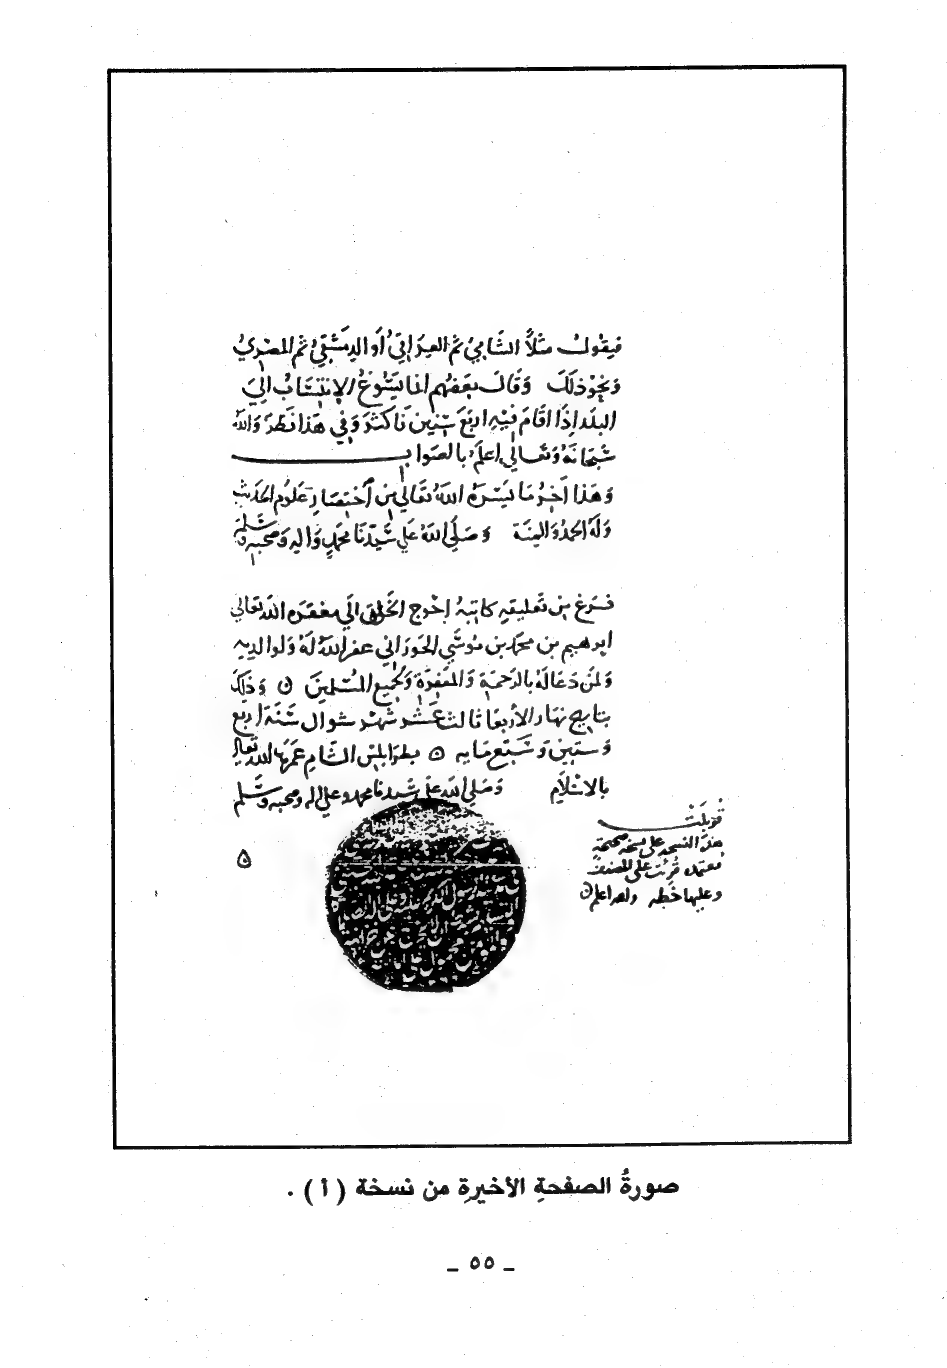 فيقول مثلًا الشَّامِيُّ ثم العِرَاقيّ أو الدِمَشْقِيُّ ثم المصْرِيُّ
ونحوذلك وَقَالَ بعضهم انما يَسُوغُ الاِنتِسَابُ الىَ
البلد إذَا اقَامَ فيْهِ اربَعَ سِنين فَاكثرَ وَفي هَذا نَظرٌ وَاللهُ
سُبحانهُ وَتعالى اعلَمُ بالصَوابِ
وَهَذا آخِرُ مَا يَسَّرَهُ اللهُ تَعَالى مِن اختِصَارِ عَلوُم الحَديث
وَلَهُ الحَمْدُ وَالمِنَّة وَصَلى اللهُ عَلى سَيّدنَا محمّدٍ وَالِه وَصَحْبِه وَسَلم
فَرَغ مِن تَعليقهِ كاتبُهُ احْوج الخَلقِ الَى مغفرَة اللهِ تعَالى
ابرهيم بن محمد بن مُوسَى الحَورَانى عفا اللهُ لهُ وَلوالديه
وَلمَن دَعَا لهُ بالرَحمَة وَالمغفِرَة وَلجَميعِ المُسْلمينَ وَذلكَ
بتاريخ نهَار الأربعَا ثالث عَشر شهْر شوال سَنَة اربَع
وَسِتين وَسَبع مَايه بطرابلسَ الشَام عَمرَهَا الله تعالى
بالاسْلام وَصَلى الله عَلى سَيدنا محمد وعلى اله وصحبه وَسَلم
قوبلَتْ
هَذه النسخة على نسخة صحيحة
معتمده قُرئت على المصنف
وعليها خَطه والله اعلم
صورةُ الصفحةِ الأخيرةِ من نسخة ( أ ) .
ـ ٥٥ ـ